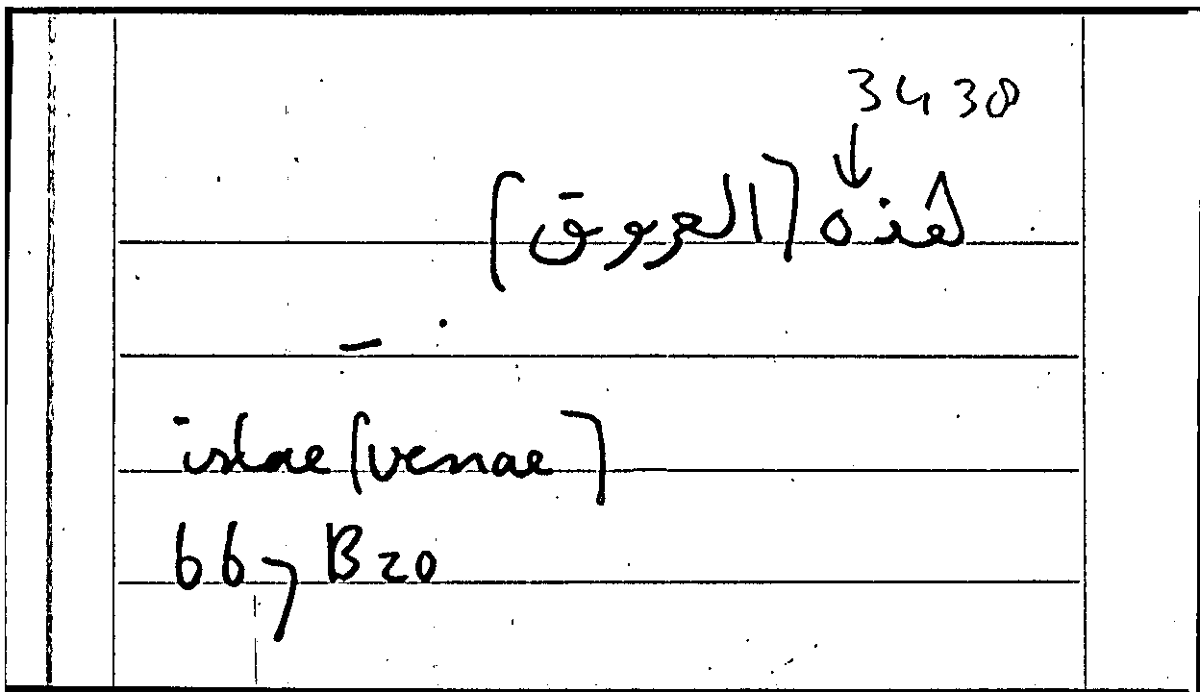 3438
↓
هذه [العروق]
—
istae [venae]
667 B20